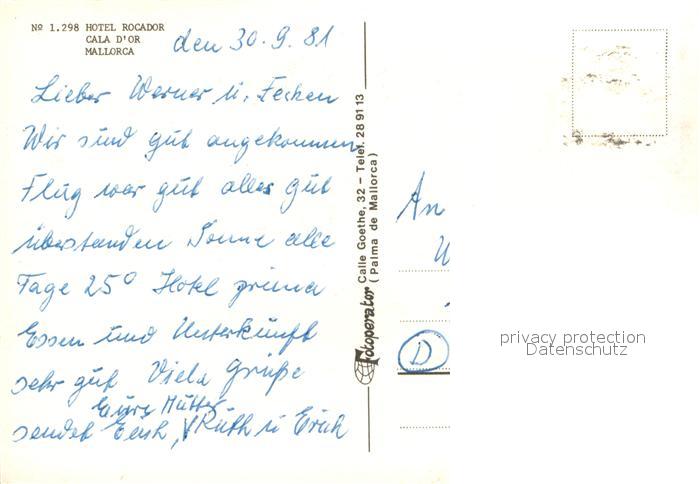 Nº 1.298 HOTEL ROCADOR
CALA D'OR
MALLORCA
den 30.9.81
Lieber Werner u.
Wir sind gut angekommen
Flug war gut alles gut
überstanden Sonne alle
Tage 25° Hotel prima
Essen und Unterkünft
sehr gut Viele Grüße
Eure Mutter
sendet Euch, Ruth u Erich
Fotoperator Calle Goethe, 32 - Telef. 28 91 13
(Palma de Mallorca)
An
D
privacy protection
Datenschutz